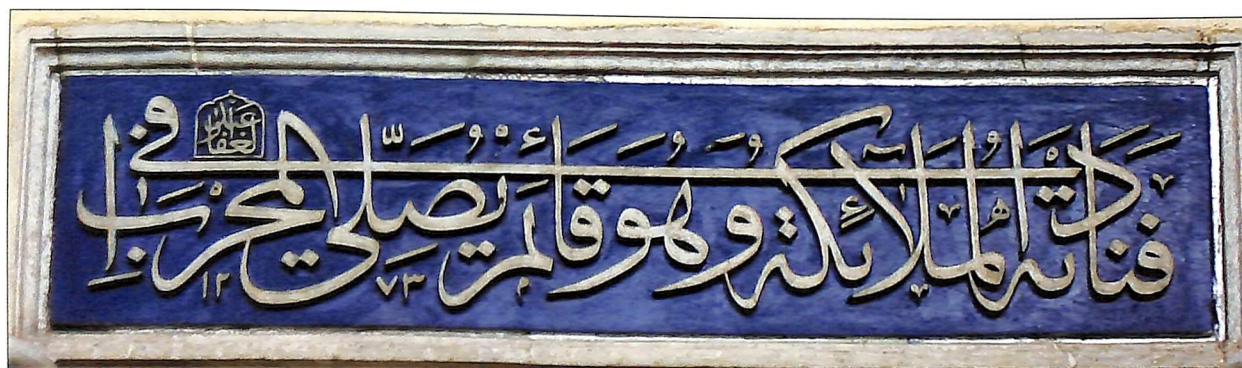 فَنَادَتْهُ الْمَلَآئِكَةُ وَهُوَ قَائِمٌ يُصَلِّي فِي الْمِحْرَابِ
عبد الغفار
١٢٧٣